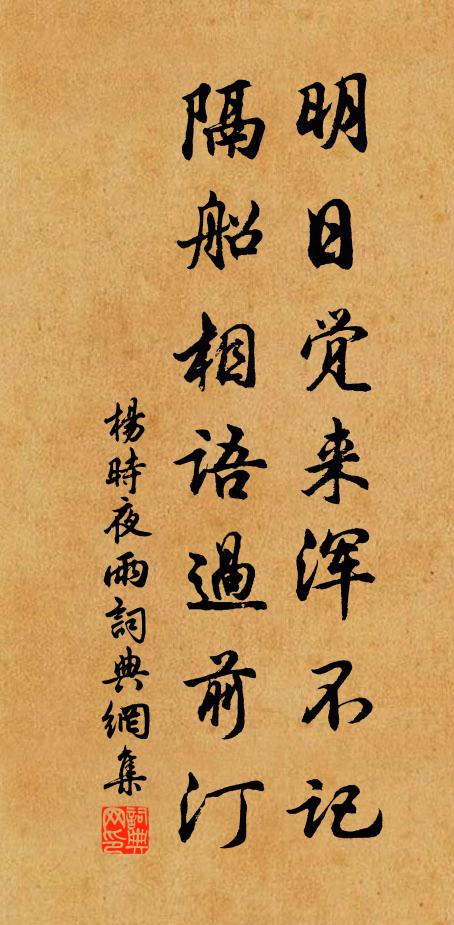 明日觉来浑不记
隔船相语過前汀
楊時夜雨詞典網集
詞典网印